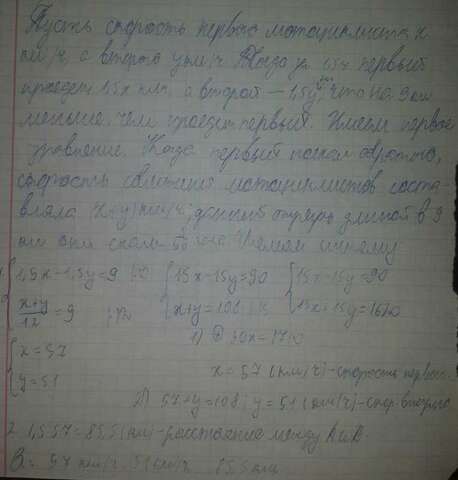 Пусть скорость первого мотоциклиста x
км/ч, а второго y км/ч. Тогда за 1,5ч первый
проедет 1,5x км, а второй — 1,5y км, что на 9 км
меньше, чем проедет первый. Имеем первое
уравнение. Когда первый поехал обратно,
скорость сближения мотоциклистов соста-
вляла (x+y) км/ч, длиной в 9
км они Имеем систему
1,5x-1,5y=9 15x-15y=90 15x-15y=90
x+y/12=9 x+y=108 15x+15y=1620
1) 30x=1710
x=57 x=57 (км/ч)-скорость первого.
y=51 2) 57+y=108; y=51 (км/ч)-скор. второго
2. 1,5·57=85,5(км)-расстояние между A и B.
57 км/ч, 51 км/ч 85,5 км